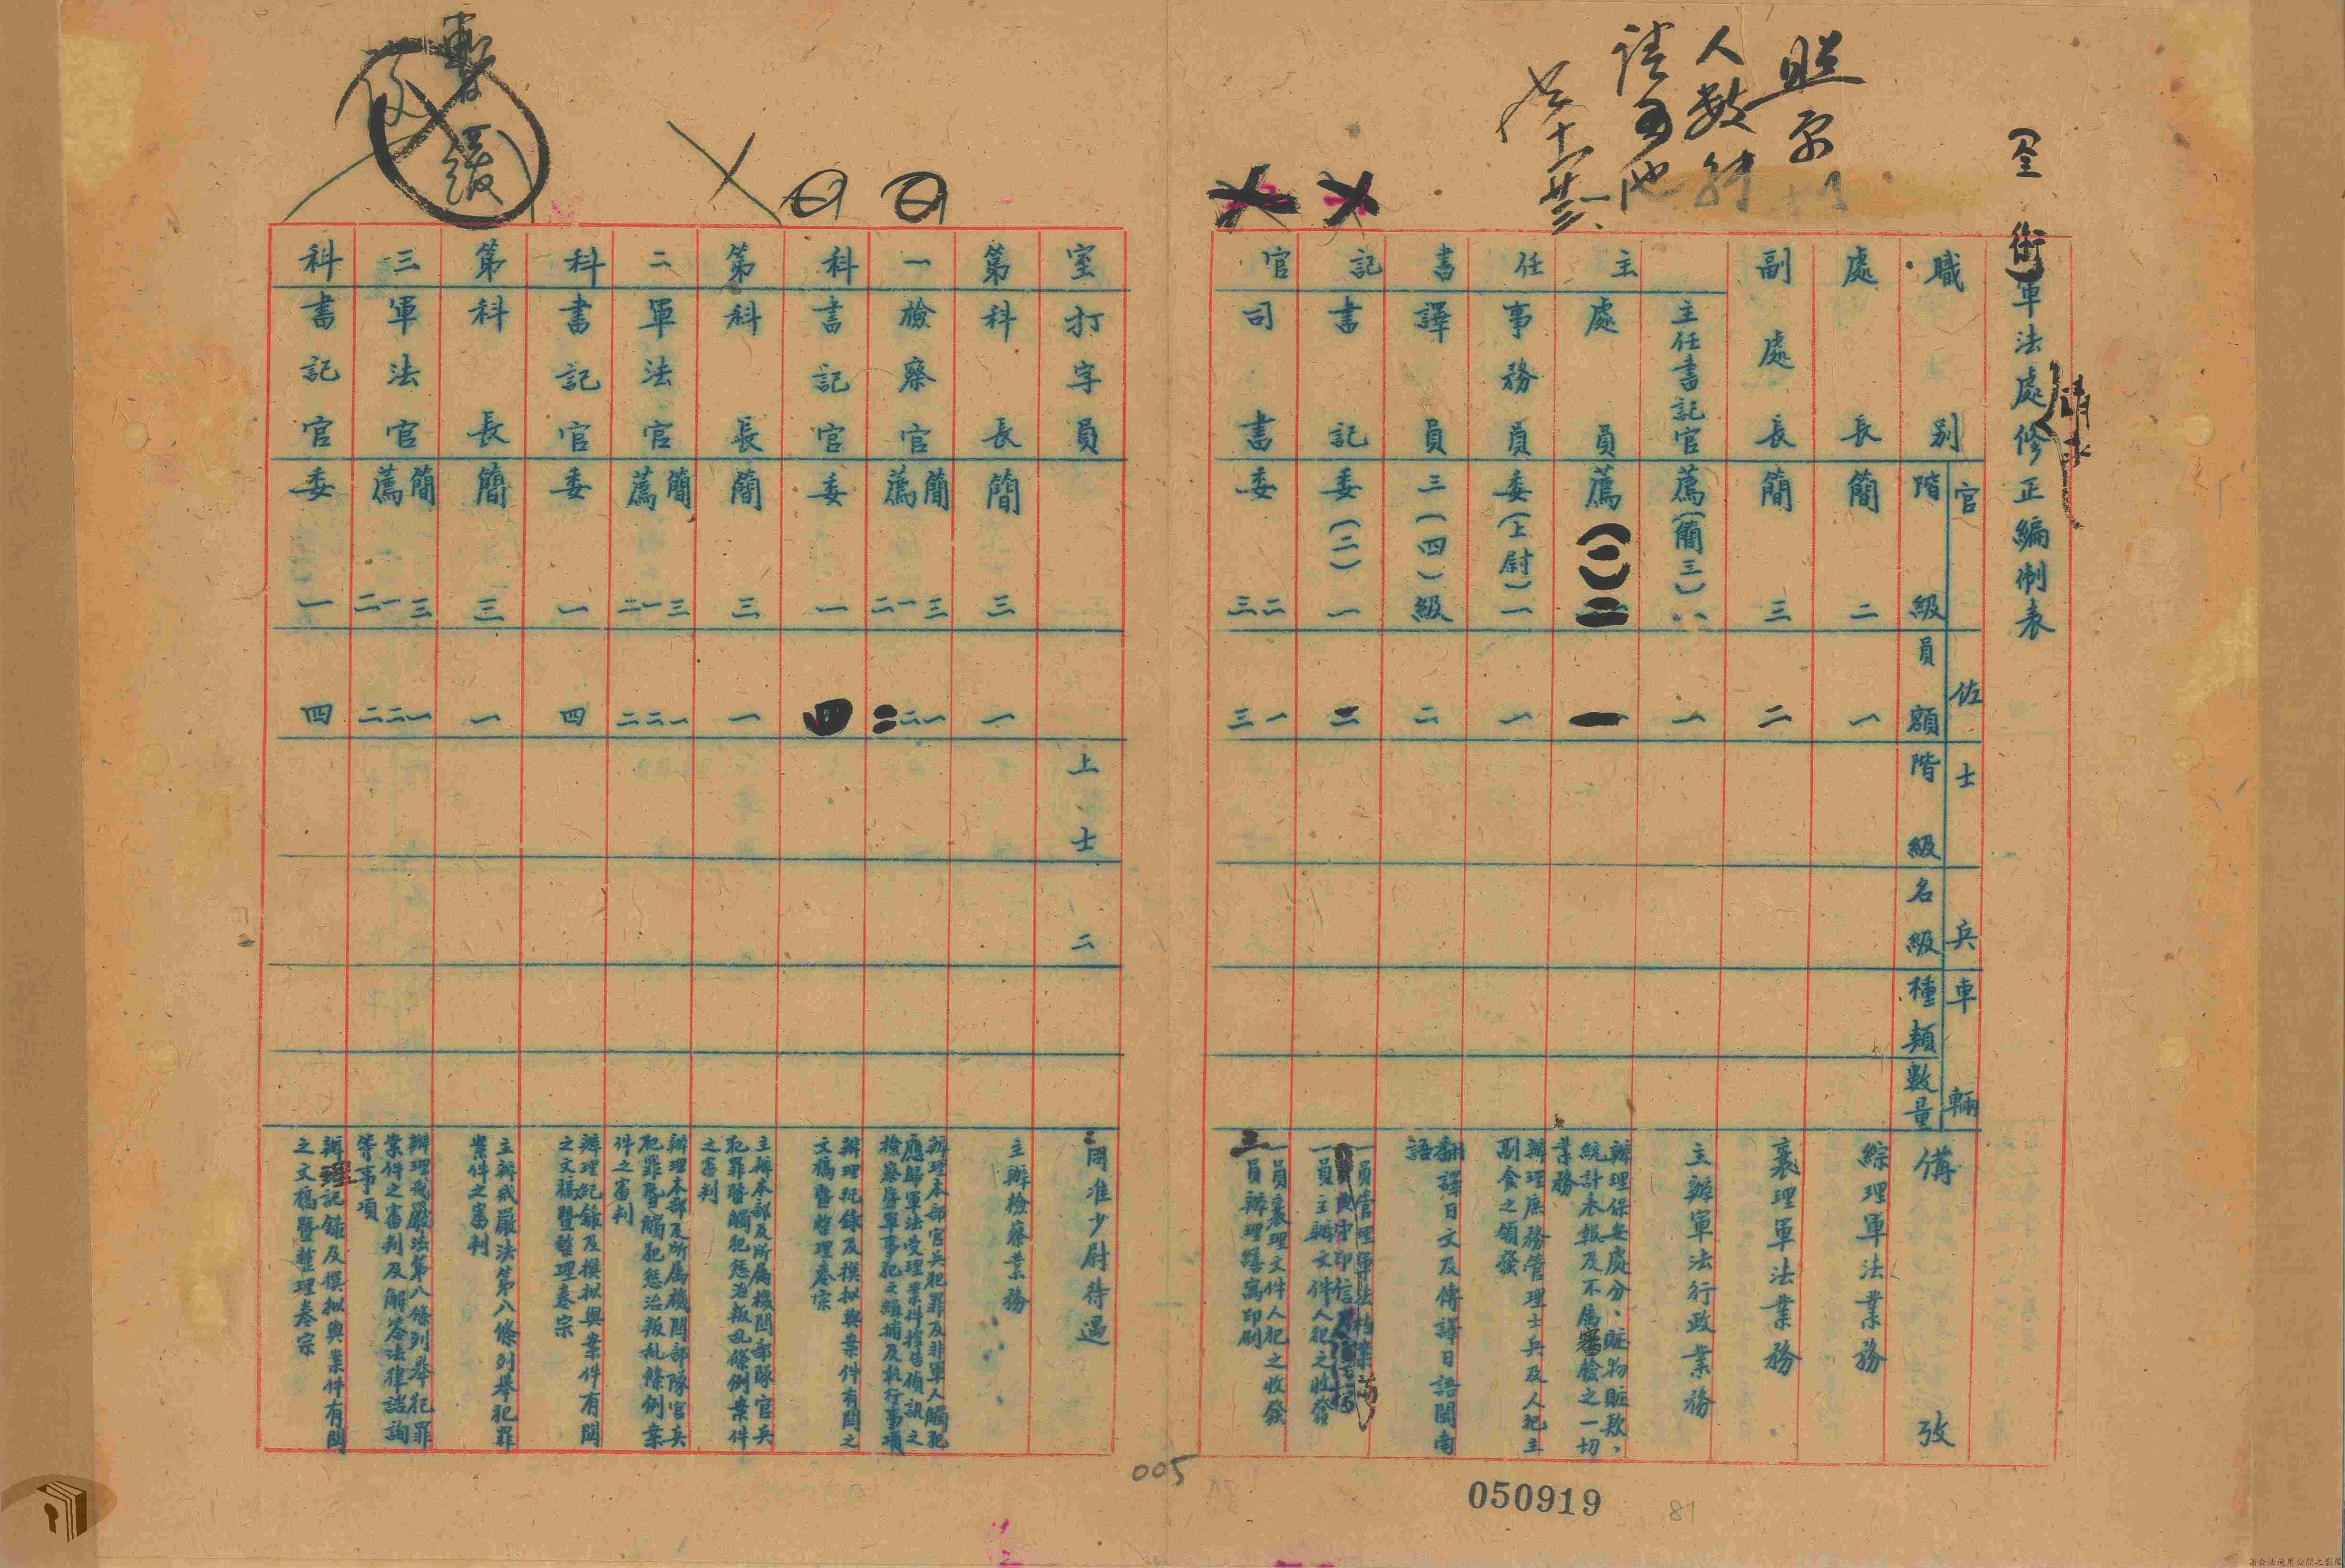 軍法處修正編制表
照
人數
請
暫緩
職別
官佐
階級
員額
士兵
階級
名級
車輛
種類
數量
備攷
處長
簡二
一
綜理軍法業務
副處長
簡三
二
襄理軍法業務
主任書記官室
主任書記官
薦(簡三)
一
主辦軍法行政業務
處員
薦(一)二
一
辦理保安處分、賍物賍欵、
統計表報及不属審檢之一切
業務
事務員
委(上尉)一
一
辦理庶務管理士兵及人犯主
副食之領發
譯員
三(四)級
二
翻譯日文及傳譯日語閩南
語
書記
委(二)一
二
一員管理軍法档案
一員主辦文件人犯之收發
司書
委二三
一三
一員襄理文件人犯之收發
三員辦理繕寫印刷
打字員
上士
二
一同准少尉待遇
第一科
科長
簡三
一
主辦檢察業務
檢察官
簡三
薦一二
一二二
辦理本部官兵犯罪及非軍人觸犯
應歸軍法受理案件控告偵訊之
檢察暨軍事犯之緝捕及執行事項
書記官
委一
四
辦理紀錄及撰拟與案件有関之
文稿暨整理卷宗
第二科
科長
簡三
一
主辦本部及所属機関部隊官兵
犯罪暨觸犯懲治叛乱條例案件
之審判
軍法官
簡三
薦一二
一二二
辦理本部及所属機関部隊官兵
犯罪暨觸犯懲治叛乱條例案
件之審判
書記官
委一
四
辦理紀錄及撰拟與案件有関
之文稿暨整理卷宗
第三科
科長
簡三
一
主辦戒嚴法第八條列舉犯罪
案件之審判
軍法官
簡三
薦一二
一二二
辦理戒嚴法第八條列舉犯罪
案件之審判及解答法律諮詢
等事項
書記官
委一
四
辦理記錄及撰拟與案件有関
之文稿暨整理卷宗
005
050919
81
請合法使用公開之影像